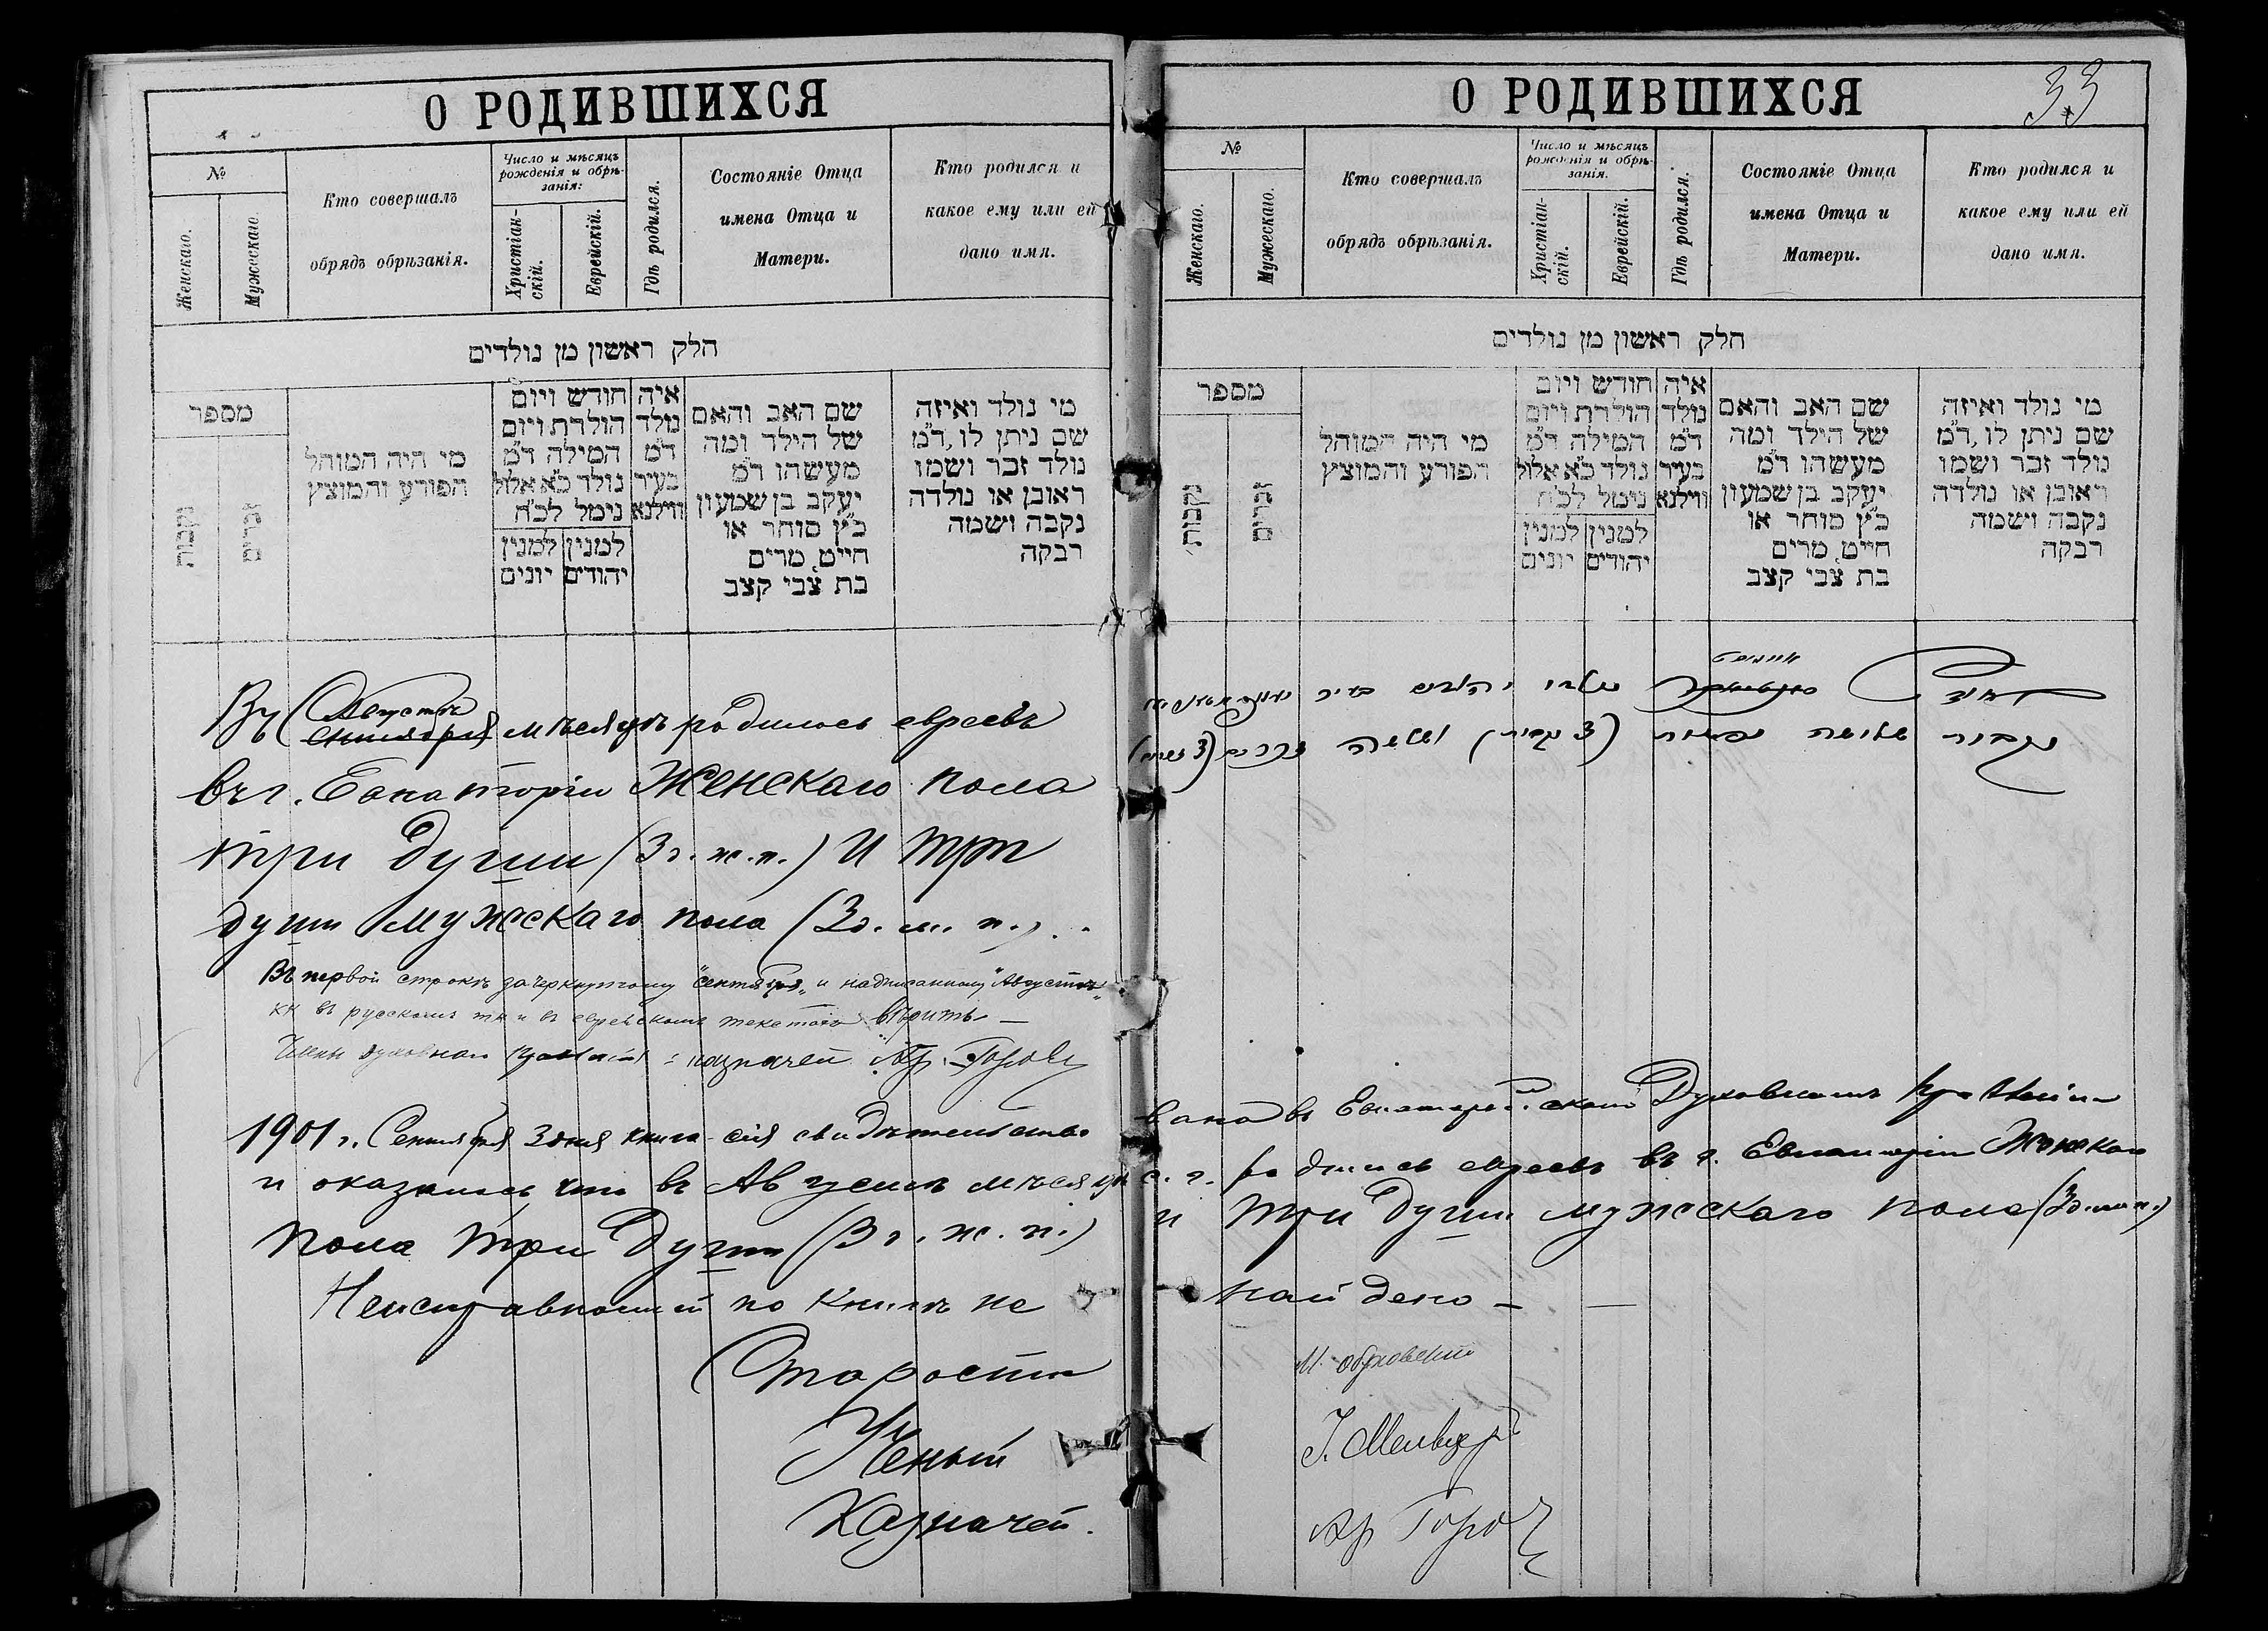 О РОДИВШИХСЯ
№
Женскаго.
Мужескаго.
Кто совершалъ
обрядъ обрѣзанія.
Число и мѣсяцъ
рожденія и обрѣ-
занія:
Христіан-
скій.
Еврейскій.
Гдѣ родился.
Состояніе Отца
имена Отца и
Матери.
Кто родился и
какое ему или ей
дано имя.
חלק ראשון מן נולדים
מספר
נקבות
זכרים
מי היה המוהל
הפורע והמוצץ
חודש ויום
הולדת ויום
המילה ד״מ
נולד כ״א אלול
נימל לכ״ח
למנין
יהודים
למנין
יונים
איה
נולד
ד״מ
בעיר
ווילנא
שם האב והאם
של הילד ומה
מעשהו ד״מ
יעקב בן שמעון
כ״ץ סוחר או
חייט, מרים
בת צבי קצב
מי נולד ואיזה
שם ניתן לו, ד״מ
נולד זכר ושמו
ראובן או נולדה
נקבה ושמה
רבקה
Августъ
Въ сентябрѣ мѣсяцѣ родилось евреевъ
въ г. Евпаторіи Женскаго пола
три души (3 д. ж. п.) и три
души Мужескаго пола (3 д. м. п.).
Въ первой строкѣ зачеркнутому "сентября" и надписанному "Августъ"
въ русскомъ и въ еврейскомъ текстахъ вѣрить —
казначей Ар. Горов
1901 г. Сентября 3 дня книга сія свидѣтельство
и оказалось что въ Августѣ мѣсяцѣ
пола три души (3 д. ж. п.)
Неисправностей по книгѣ не
Староста
Ученый
Казначей.
О РОДИВШИХСЯ
33
№
Женскаго.
Мужескаго.
Кто совершалъ
обрядъ обрѣзанія.
Число и мѣсяцъ
рожденія и обрѣ-
занія.
Христіан-
скій.
Еврейскій.
Гдѣ родился.
Состояніе Отца
имена Отца и
Матери.
Кто родился и
какое ему или ей
дано имя.
חלק ראשון מן נולדים
מספר
נקבות
זכרים
מי היה המוהל
הפורע והמוצץ
חודש ויום
הולדת ויום
המילה ד״מ
נולד כ״א אלול
נימל לכ״ח
למנין
יהודים
למנין
יונים
איה
נולד
ד״מ
בעיר
ווילנא
שם האב והאם
של הילד ומה
מעשהו ד״מ
יעקב בן שמעון
כ״ץ סוחר או
חייט, מרים
בת צבי קצב
מי נולד ואיזה
שם ניתן לו, ד״מ
נולד זכר ושמו
ראובן או נולדה
נקבה ושמה
רבקה
вана въ Евпаторійскомъ Духовномъ Правленіи
с. г. родились евреевъ въ г. Евпаторіи Женскаго
и три души мужескаго пола (3 д. м. п.)
найдено —